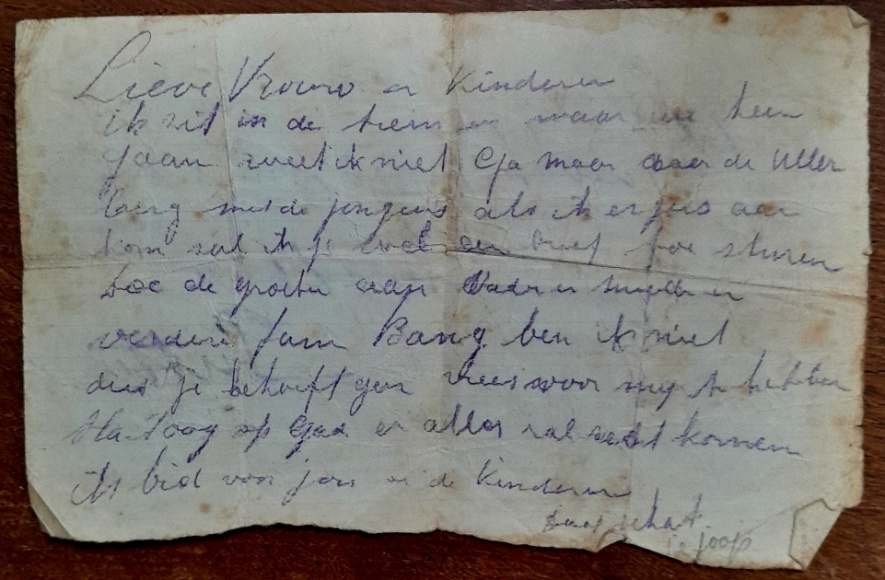 Lieve Vrouw en Kinderen
ik zit in de trein en waar we heen
gaan weet ik niet Ga maar naar de Uller
berg met de jongens als ik ergens aan
kom zal ik je wel een brief toe sturen
Doe de groeten aan Vader en moeder en
verdere fam Bang ben ik niet
dus je behoeft geen vrees voor mij te hebben
Houd oog op God en alles zal recht komen
ik bid voor jou en de Kinderen
Dag schat
je Joop